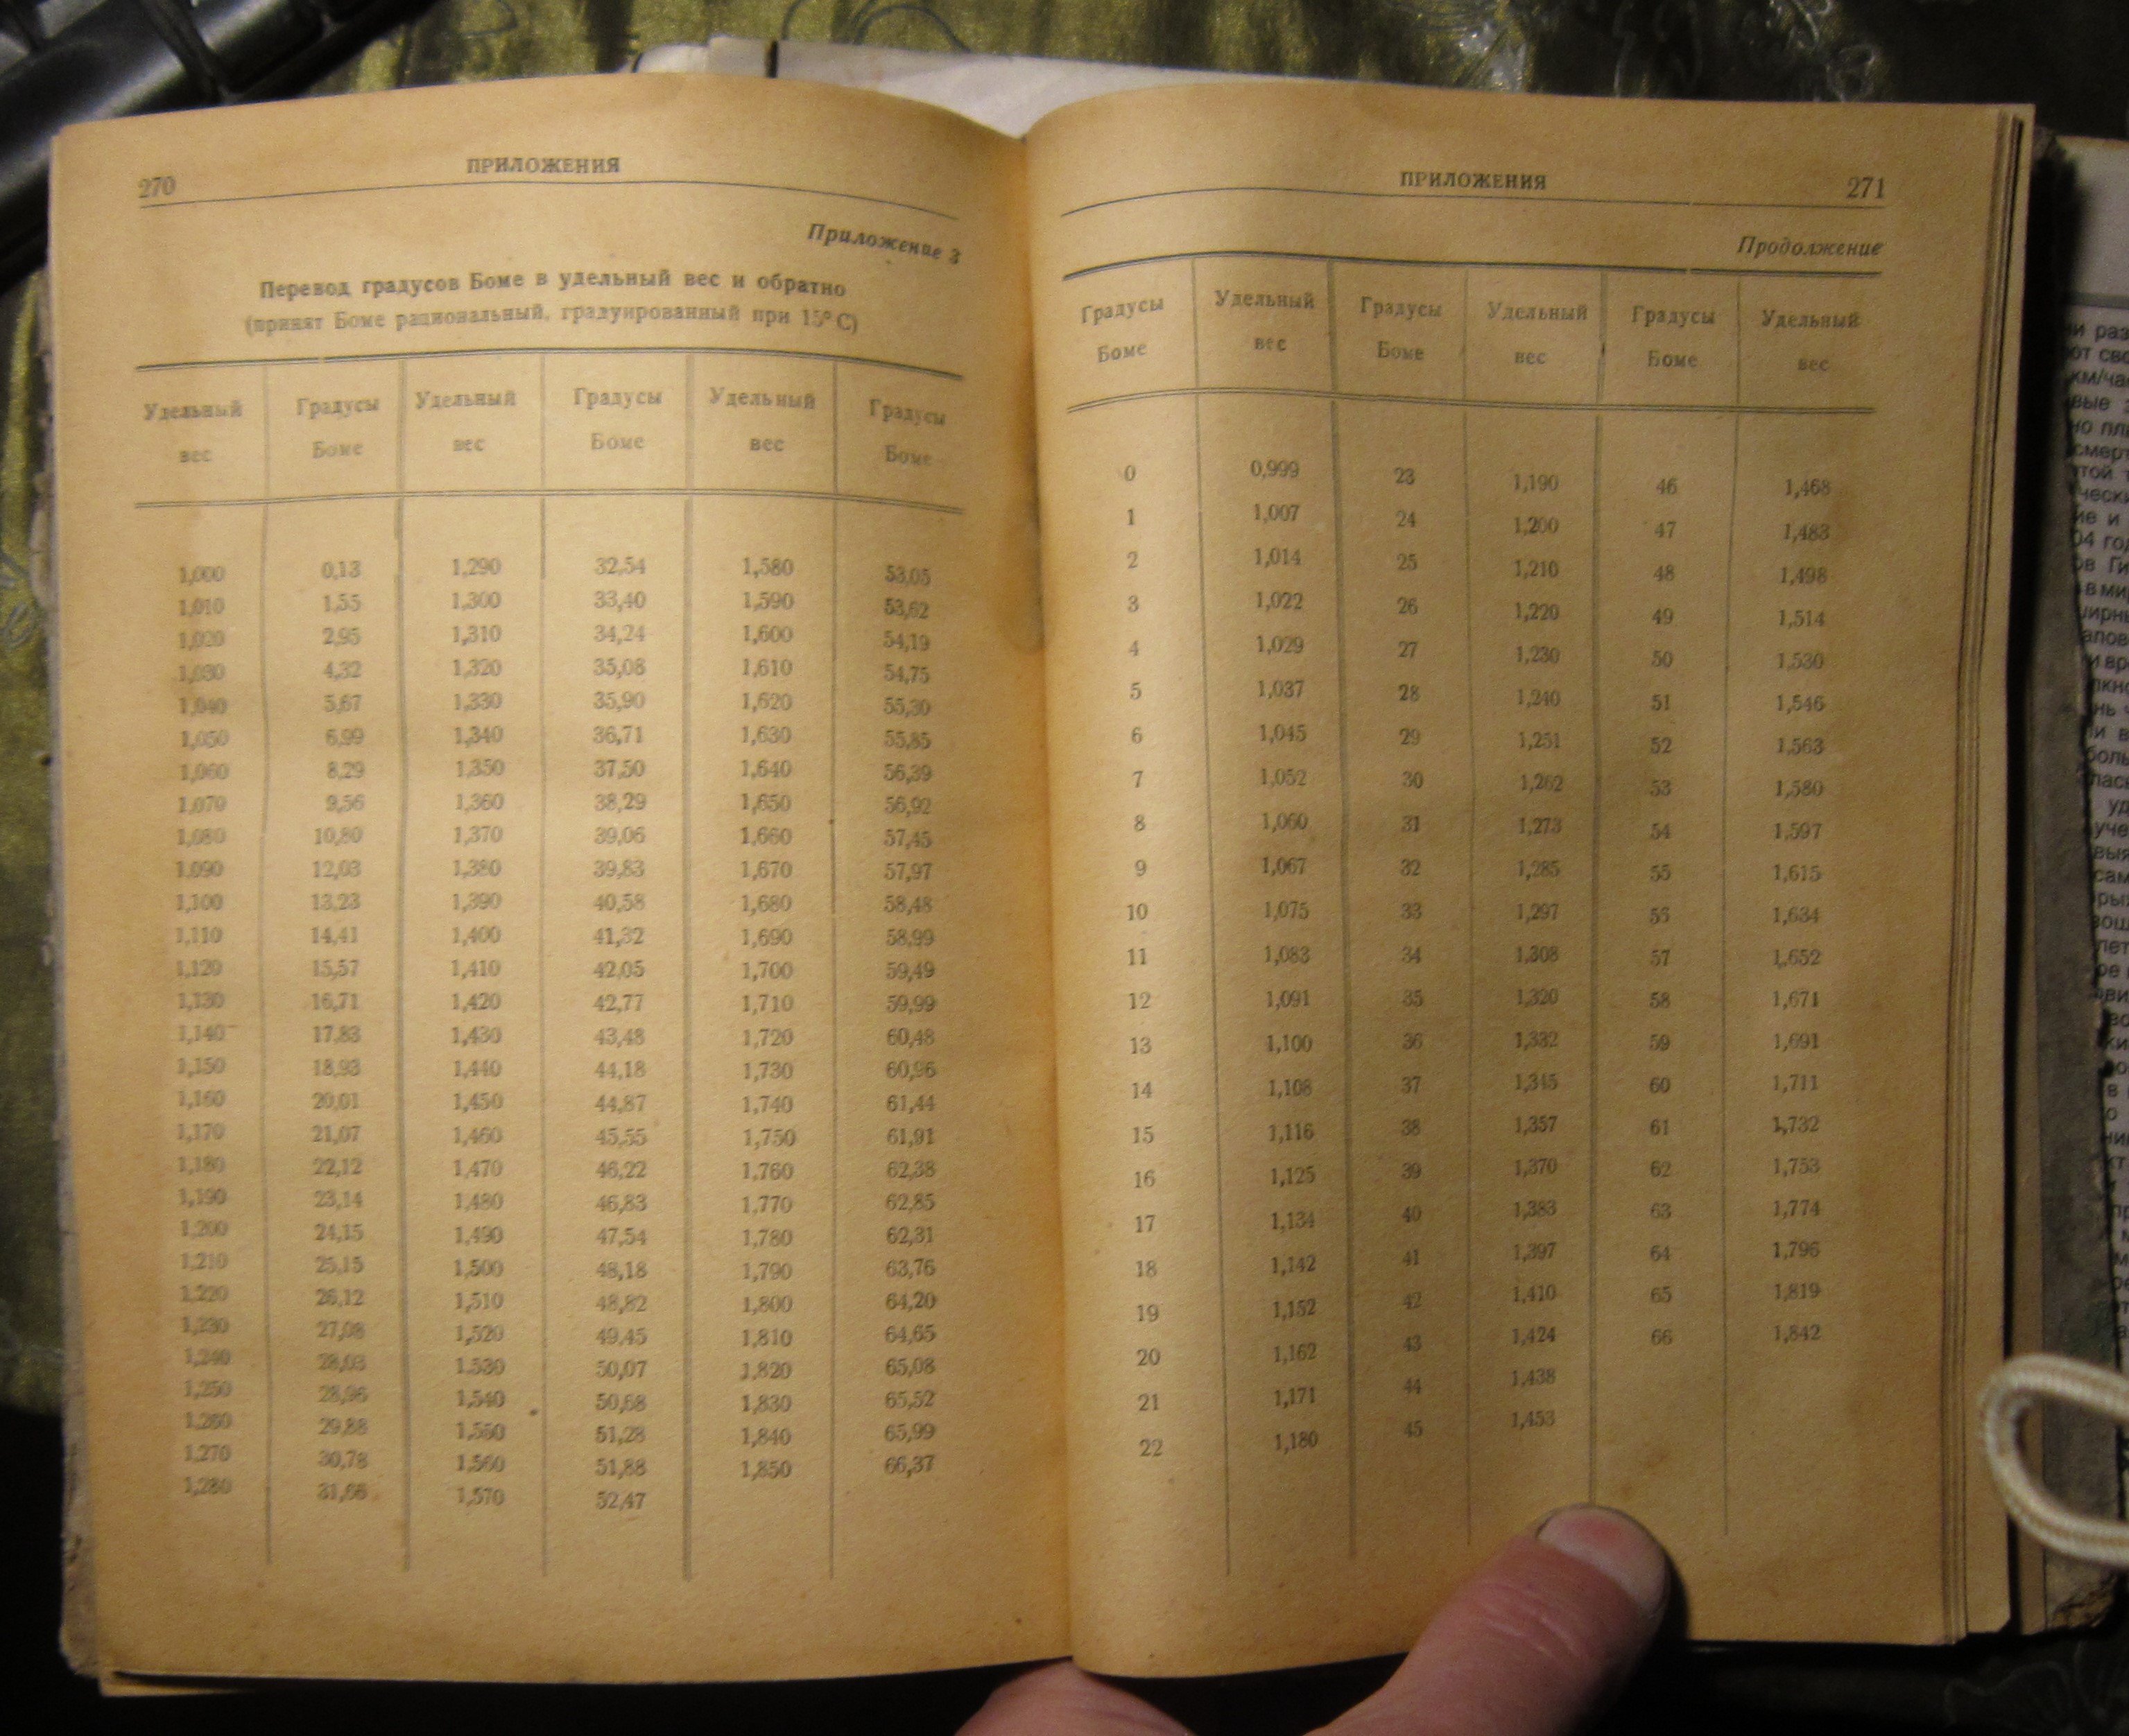 270
ПРИЛОЖЕНИЯ
Приложение 3
Перевод градусов Боме в удельный вес и обратно
(принят Боме рациональный, градуированный при 15° С)
Удельный вес Градусы Боме Удельный вес Градусы Боме Удельный вес Градусы Боме
1,000 0,13 1,290 32,54 1,580 53,05
1,010 1,55 1,300 33,40 1,590 53,62
1,020 2,95 1,310 34,24 1,600 54,19
1,030 4,32 1,320 35,08 1,610 54,75
1,040 5,67 1,330 35,90 1,620 55,30
1,050 6,99 1,340 36,71 1,630 55,85
1,060 8,29 1,350 37,50 1,640 56,39
1,070 9,56 1,360 38,29 1,650 56,92
1,080 10,80 1,370 39,06 1,660 57,45
1,090 12,03 1,380 39,83 1,670 57,97
1,100 13,23 1,390 40,58 1,680 58,48
1,110 14,41 1,400 41,32 1,690 58,99
1,120 15,57 1,410 42,05 1,700 59,49
1,130 16,71 1,420 42,77 1,710 59,99
1,140 17,83 1,430 43,48 1,720 60,48
1,150 18,93 1,440 44,18 1,730 60,96
1,160 20,01 1,450 44,87 1,740 61,44
1,170 21,07 1,460 45,55 1,750 61,91
1,180 22,12 1,470 46,22 1,760 62,38
1,190 23,14 1,480 46,83 1,770 62,85
1,200 24,15 1,490 47,54 1,780 62,31
1,210 25,15 1,500 48,18 1,790 63,76
1,220 26,12 1,510 48,82 1,800 64,20
1,230 27,08 1,520 49,45 1,810 64,65
1,240 28,03 1,530 50,07 1,820 65,08
1,250 28,96 1,540 50,68 1,830 65,52
1,260 29,88 1,550 51,28 1,840 65,99
1,270 30,78 1,560 51,88 1,850 66,37
1,280 31,66 1,570 52,47
ПРИЛОЖЕНИЯ
271
Продолжение
Градусы Боме Удельный вес Градусы Боме Удельный вес Градусы Боме Удельный вес
0 0,999 23 1,190 46 1,468
1 1,007 24 1,200 47 1,483
2 1,014 25 1,210 48 1,498
3 1,022 26 1,220 49 1,514
4 1,029 27 1,230 50 1,530
5 1,037 28 1,240 51 1,546
6 1,045 29 1,251 52 1,563
7 1,052 30 1,262 53 1,580
8 1,060 31 1,273 54 1,597
9 1,067 32 1,285 55 1,615
10 1,075 33 1,297 56 1,634
11 1,083 34 1,308 57 1,652
12 1,091 35 1,320 58 1,671
13 1,100 36 1,332 59 1,691
14 1,108 37 1,345 60 1,711
15 1,116 38 1,357 61 1,732
16 1,125 39 1,370 62 1,753
17 1,134 40 1,383 63 1,774
18 1,142 41 1,397 64 1,796
19 1,152 42 1,410 65 1,819
20 1,162 43 1,424 66 1,842
21 1,171 44 1,438
22 1,180 45 1,453